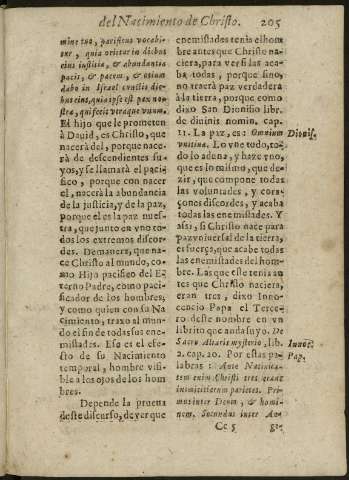 del Nacimiento de Christo. 205
mine tuo, pacificus vocabi-
tur, quia orietur in diebus
eius iustitia, & abundantia
pacis, & pacem, & otium
dabo in Israel cunctis die-
bus eius, quia ipse est pax nos-
tra, qui fecit vtraque vnum.
El hijo que le prometen
à Dauid, es Christo, que
nacerà del, porque nace-
rà de descendientes su-
yos, y se llamarà el paci-
fico, porque con nacer
el, nacerà la abundancia
de la justicia, y de la paz,
porque el es la paz nues-
tra, que junto en vno to-
dos los extremos discor-
des. De manera, que na-
ce Christo al mundo, co-
mo Hijo pacifico del E-
terno Padre, como paci-
ficador de los hombres,
y como quien con su Na
cimiento, traxo al mun-
do el fin de todas sus ene-
mistades. Esse es el efe-
cto de su Nacimiento
temporal, hombre visi-
ble a los ojos de los hom
bres.
Depende la prueua
deste discurso, de ver que
enemistades tenia el hom
bre antes que Christo na-
ciera, para ver si las aca-
ba todas, porque sino,
no traerà paz verdadera
à la tierra, porque como
dixo San Dionisio libr.
de diuinis nomin. cap.
11. La paz, es: Omnium
vnitiua. Lo vne todo, to-
do lo adena, y haze vno,
que es lo mismo, que de-
zir, que compone todas
las voluntades, y cora-
çones discordes, y acaba
todas las enemistades. Y
assi, si Christo nace para
paz vniuersal de la tierra,
es fuerça, que acabe todas
las enemistades del hom-
bre. Las que este tenia an
tes que Christo naciera,
eran tres, dixo Inno-
cencio Papa el Terce-
ro deste nombre en vn
librito que anda suyo. De
Sacro Altaris mysterio, lib.
2. cap. 20. Por estas pa-
labras: Ante Natiuita-
tem enim Christi tres erant
inimicitiarum parietes. Pri-
mus inter Deum, & homi-
nem. Secundus inter An-
Dionis.
Innoc.
Pap.
Cc 5
ge-